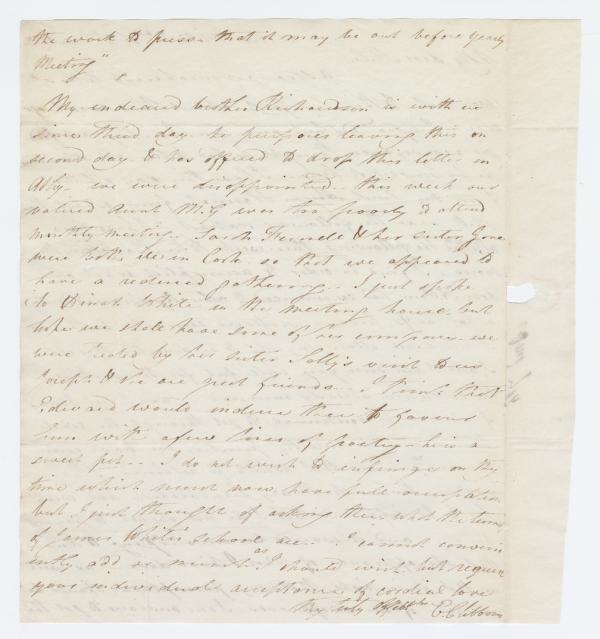 the work to press that it may be out before Yearly
Meeting"
My endeared brother Richardson is with us
since Third day he purposes leaving this on
second day & has offered to drop this letter in
we were disappointed this week our
valued Aunt M.G was too poorly to attend
monthly meeting. Sarah & her sister Jane
were both in Cork so that we appeared to
have a reduced gathering. I just spoke
to Dinah White in the meeting house but
hope we shall have some of her company. we
were treated by her sister Sally's visit
Joseph & she are great friends. I think that
Edward would induce thee to favour
him with a few lines of poetry he is a
sweet pet.. I do not wish to infringe on thy
time which must now have full occupation
but I just thought of asking thee what the terms
of James White's school are.. I cannot conveni
ently add so much as I should wish but request
your individual acceptance of cordial love
thy truly affect